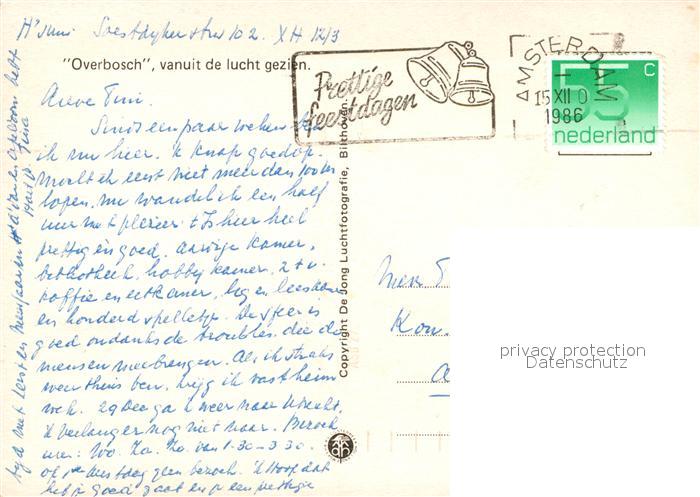 H'sum Soestdyker str 102. XII 12/3
"Overbosch", vanuit de lucht gezien.
Lieve Tini.
Sinds een paar weken
ik nu hier. Ik knap goed op.
Mocht ik eerst niet meer dan 100 m
lopen, nu wandel ik een half
uur met plezier. 't Is hier heel
prettig en goed. aardige kamer,
bibliotheek, hobby kamer, 2 t.v.
koffie en eetkamer, leeskamer
en honderd spelletjes. De sfeer is
goed ondanks de troubles, die de
mensen meebrengen. Als ik straks
weer thuis ben, krijg ik vast heim
wee. 29 Dec ga ik weer naar Utrecht,
'k verlang er nog niet naar. Bezoek
uur: Wo. Za. Zo. van 1.30 - 3.30.
geen bezoek. 'k Hoop dat
het je goed gaat en je een prettige
tyd met kerst en
Tini
Prettige
feestdagen
AMSTERDAM
15 XII 0
1986
55 C
nederland
Copyright De Jong Luchtfotografie, Bilthoven.
Mevr T
Kon.
privacy protection
Datenschutz